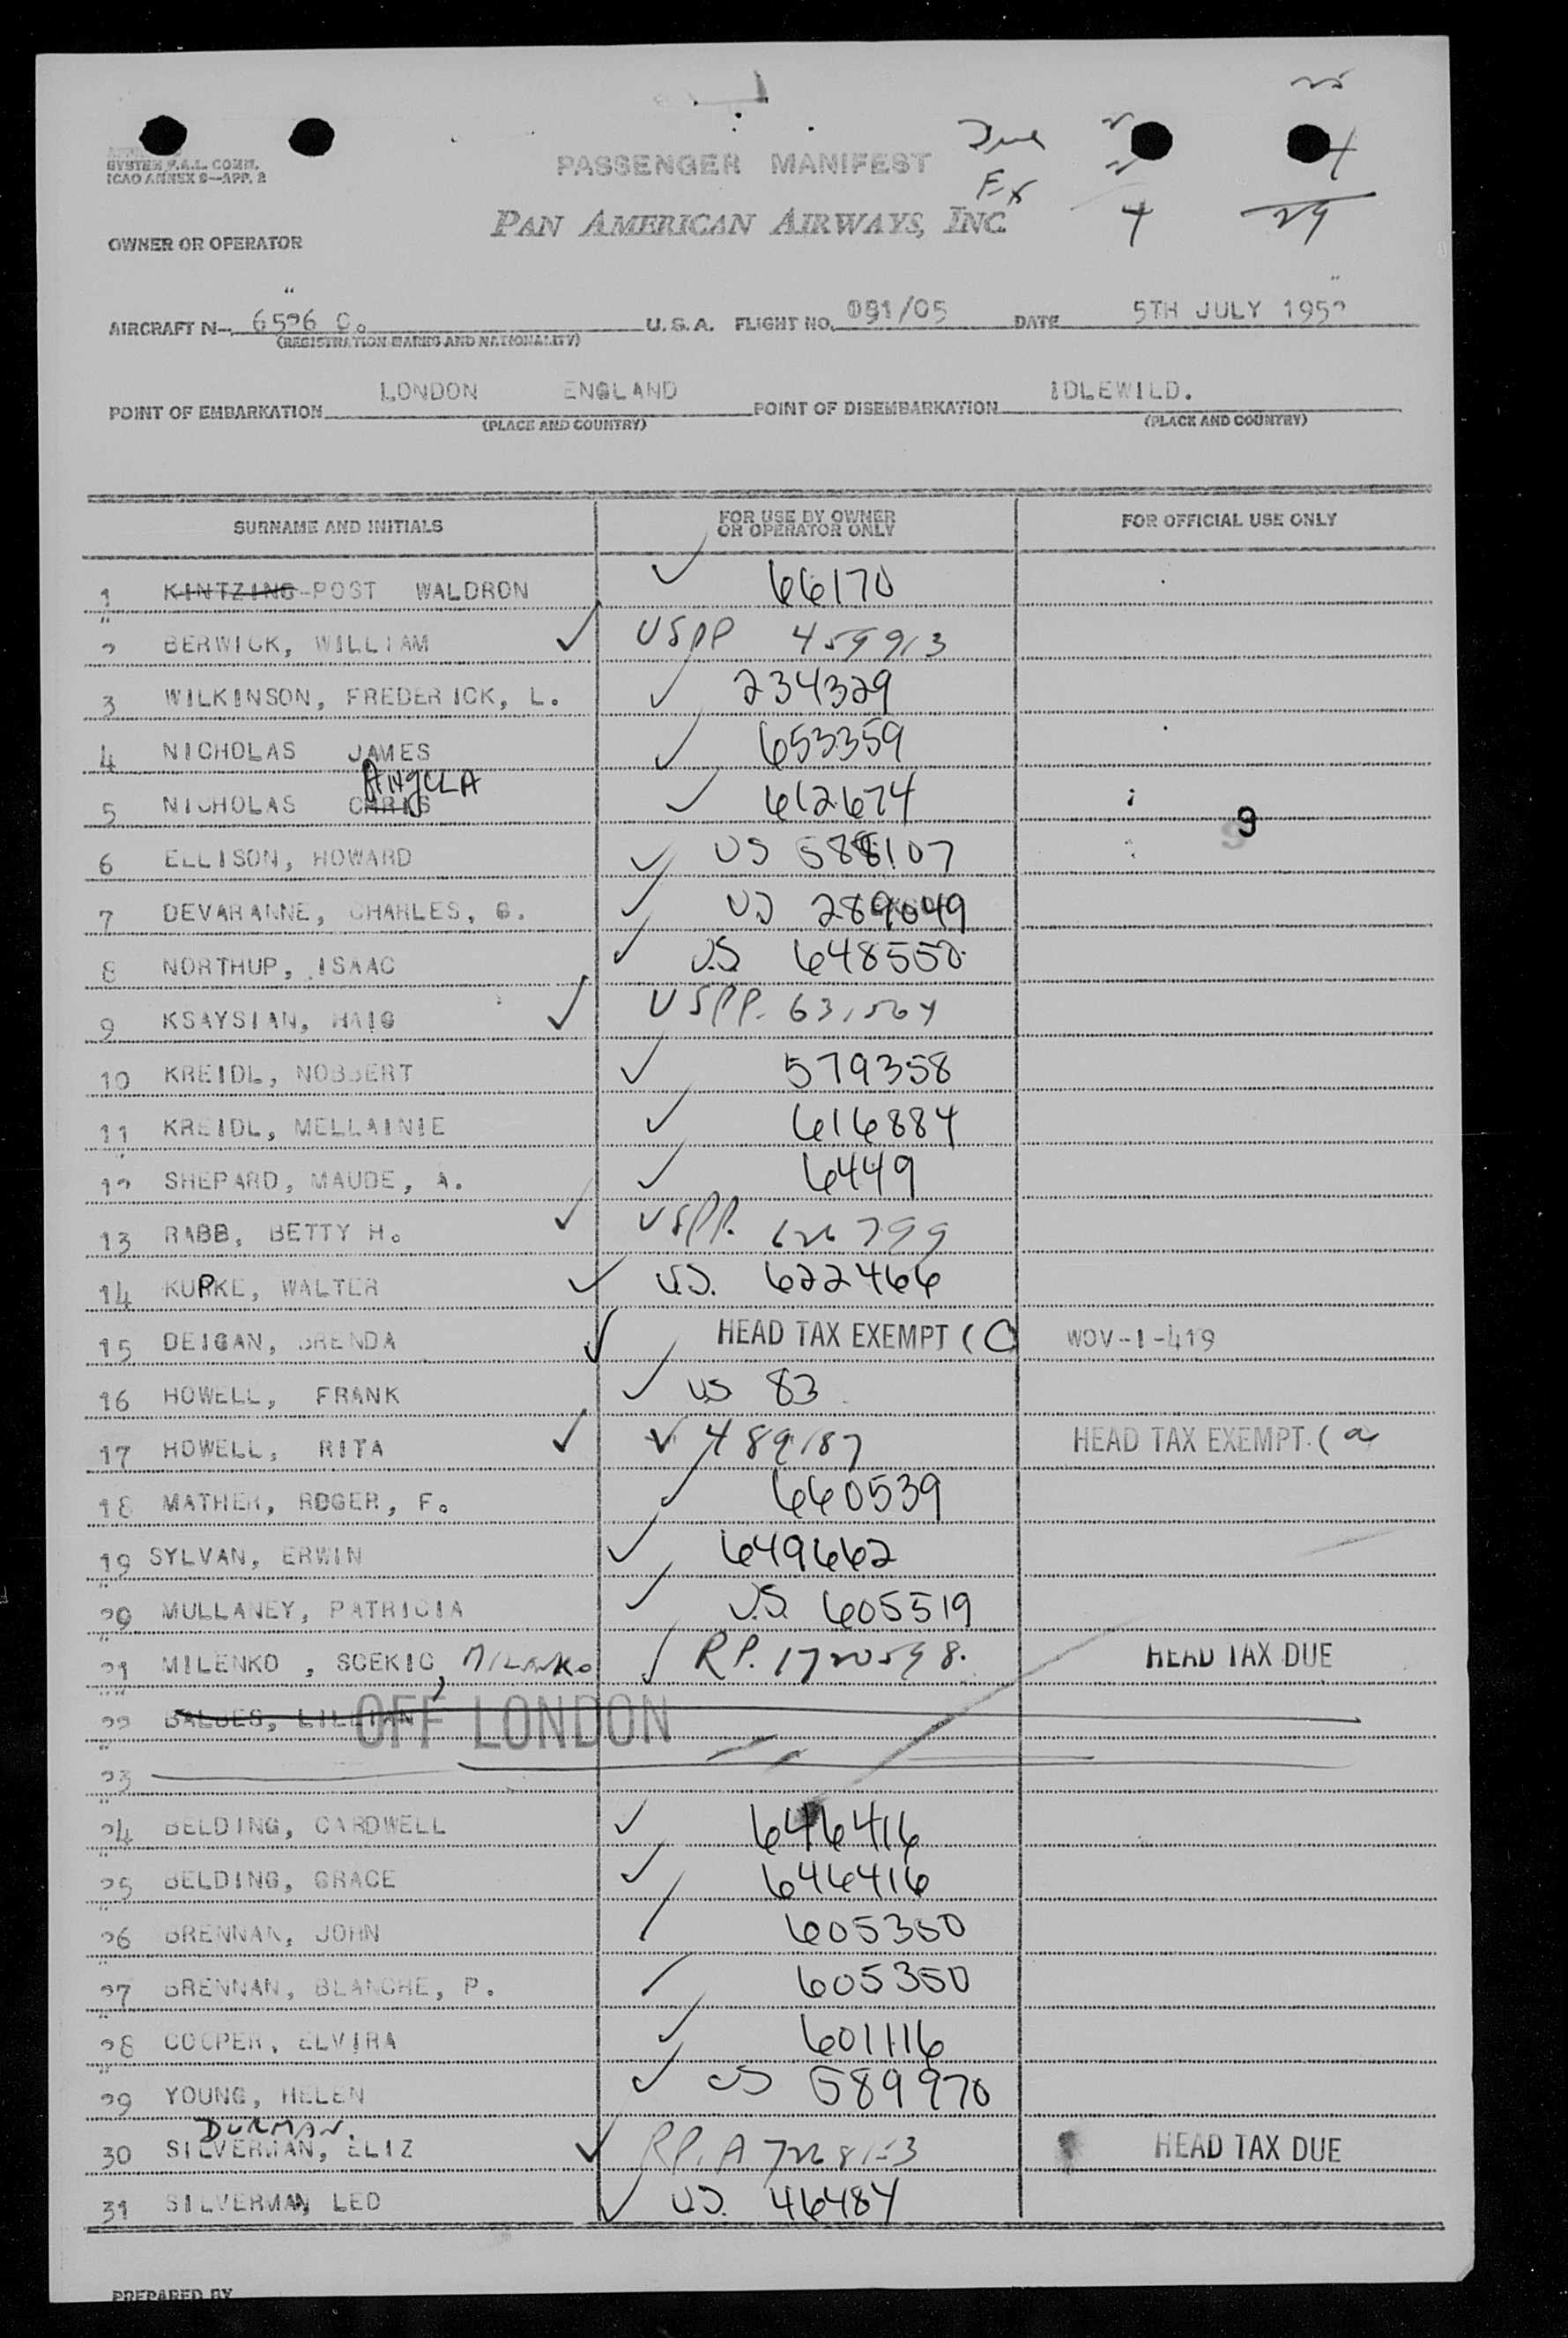 SYSTEM F.A.L. COMM.
ICAO ANNEX 9—APP. 2
PASSENGER MANIFEST
PAN AMERICAN AIRWAYS, INC.
4
29
OWNER OR OPERATOR
AIRCRAFT N— 6526 C. U.S.A. FLIGHT NO. 091/05 DATE 5TH JULY 1952
(REGISTRATION MARKS AND NATIONALITY)
POINT OF EMBARKATION LONDON ENGLAND POINT OF DISEMBARKATION IDLEWILD.
(PLACE AND COUNTRY) (PLACE AND COUNTRY)
SURNAME AND INITIALS FOR USE BY OWNER OR OPERATOR ONLY FOR OFFICIAL USE ONLY
1 KINTZING POST WALDRON ✓ 66170
2 BERWICK, WILLIAM ✓ USPP 459913
3 WILKINSON, FREDERICK, L. ✓ 234329
4 NICHOLAS JAMES ✓ 653359
ANgELA
5 NICHOLAS CHRIS ✓ 612674
9
6 ELLISON, HOWARD ✓ US 588107
7 DEVARANNE, CHARLES, G. ✓ US 289049
8 NORTHUP, ISAAC ✓ U.S. 648550
9 KSAYSIAN, HAIG ✓ USPP. 631564
10 KREIDL, NOBBERT ✓ 579358
11 KREIDL, MELLAINIE ✓ 616884
12 SHEPARD, MAUDE, A. ✓ 6449
13 RABB, BETTY H. ✓ USPP. 626799
14 KUPKE, WALTER ✓ U.S. 622466
15 DEIGAN, BRENDA ✓ HEAD TAX EXEMPT (C WOV-1-419
16 HOWELL, FRANK ✓ US 83
17 HOWELL, RITA ✓ V 489187 HEAD TAX EXEMPT (a
18 MATHER, ROGER, F. ✓ 660539
19 SYLVAN, ERWIN ✓ 649662
20 MULLANEY, PATRICIA ✓ U.S. 605519
21 MILENKO, SCEKIC, MILENKO ✓ RP. 1720598. HEAD TAX DUE
22 BALDES, LILLIAN OFF LONDON
23
24 BELDING, CARDWELL ✓ 646416
25 BELDING, GRACE ✓ 646416
26 BRENNAN, JOHN / 605350
27 BRENNAN, BLANCHE, P. / 605350
28 COOPER, ELVIRA ✓ 601116
29 YOUNG, HELEN ✓ US 589970
DURMAN.
30 SILVERMAN, ELIZ ✓ RP. A 7268153 HEAD TAX DUE
31 SILVERMAN, LEO ✓ U.S. 46484
PREPARED BY